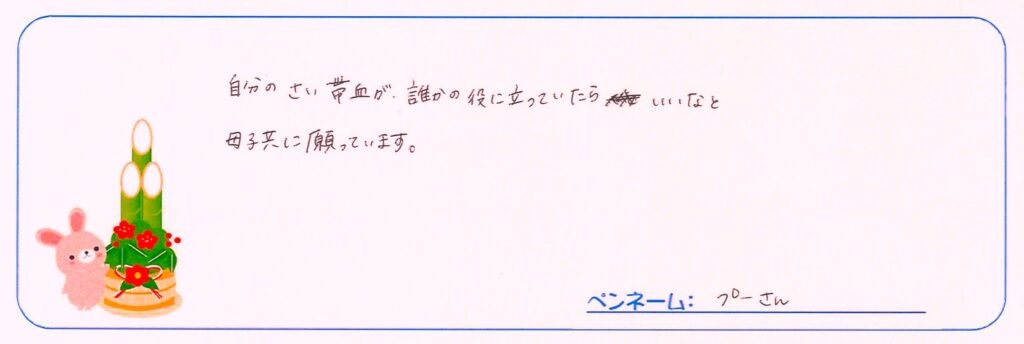 自分のさい帯血が、誰かの役に立っていたらいいなと
母子共に願っています。
ペンネーム: プーさん